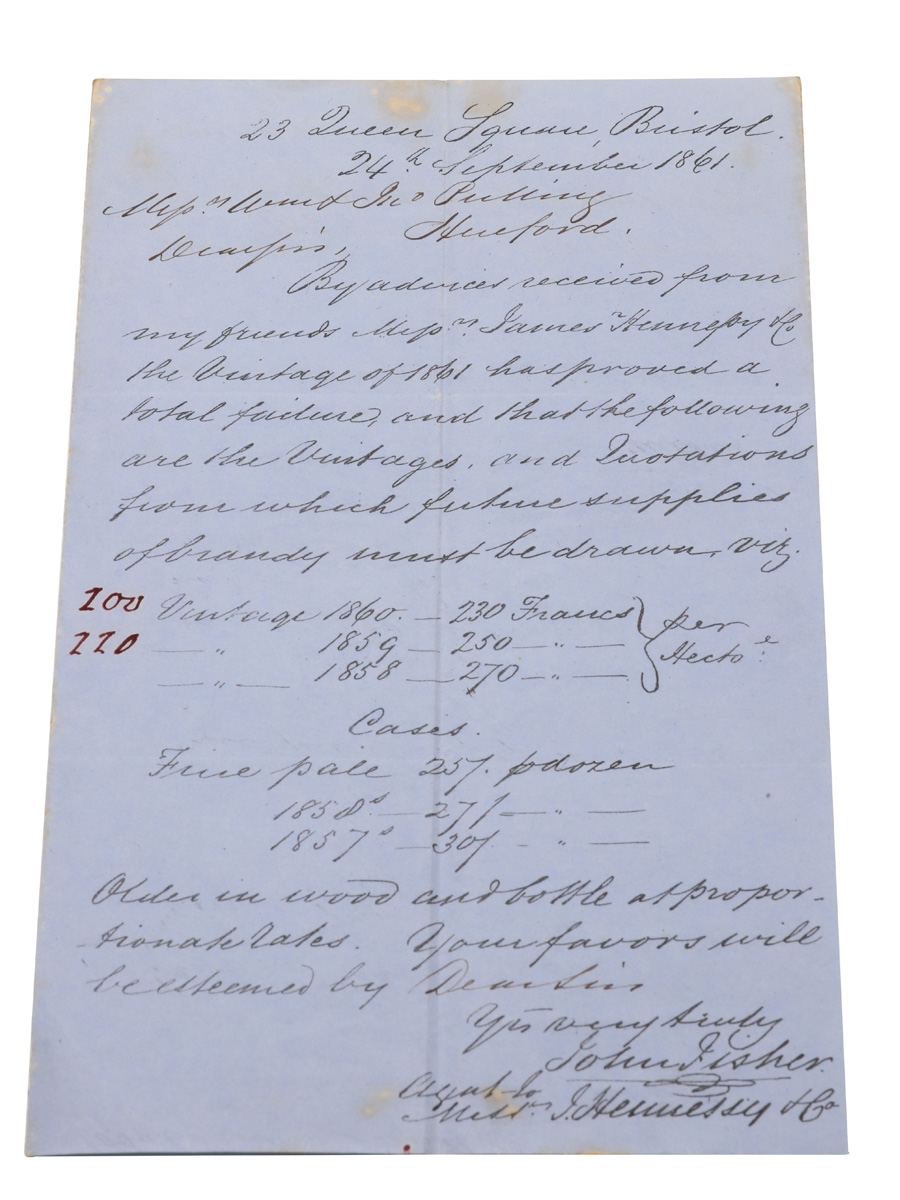 23 Queen Square, Bristol.
24th September 1861.
Messrs Wm & Jno Pulling
Hereford.
Dear Sirs,
By advices received from
my friends Messrs. James Hennessy & Co
the Vintage of 1861 has proved a
total failure, and that the following
are the Vintages, and Quotations
from which future supplies
of brandy must be drawn, viz.
200 Vintage 1860. — 230 Francs } per
220 — " 1859 — 250 — " — } Hectoe
— " — 1858 — 270 — " —
Cases.
Fine pale 25/. p dozen
1858s — 27/ — " —
1857s — 30/. — " —
Older in wood and bottle at propor-
tionate rates. Your favors will
be esteemed by Dear Sirs
Yrs very truly
John Fisher.
Agent to
Messrs J. Hennessy & Co